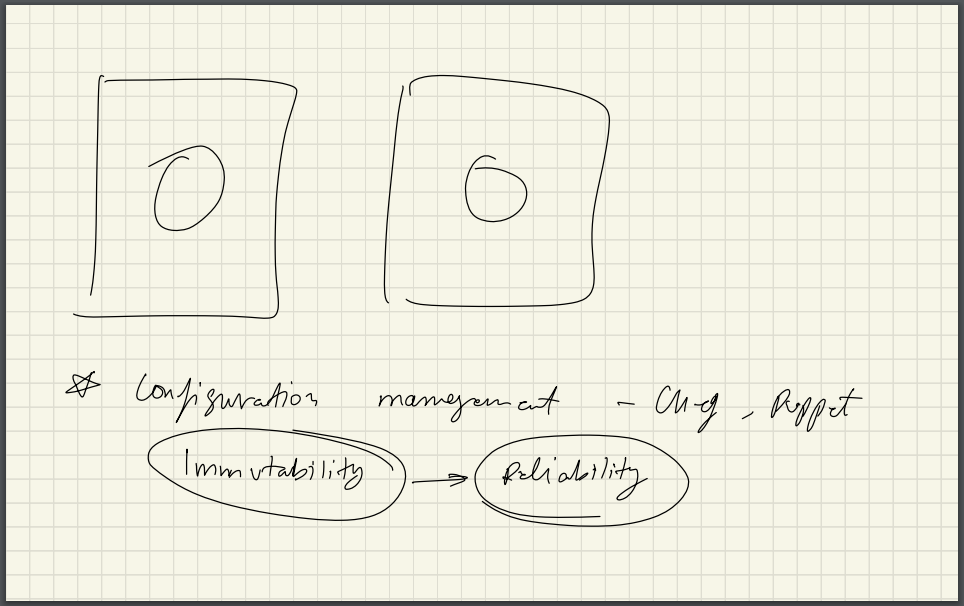 Configuration management - Chef, Puppet
Immutability → Reliability